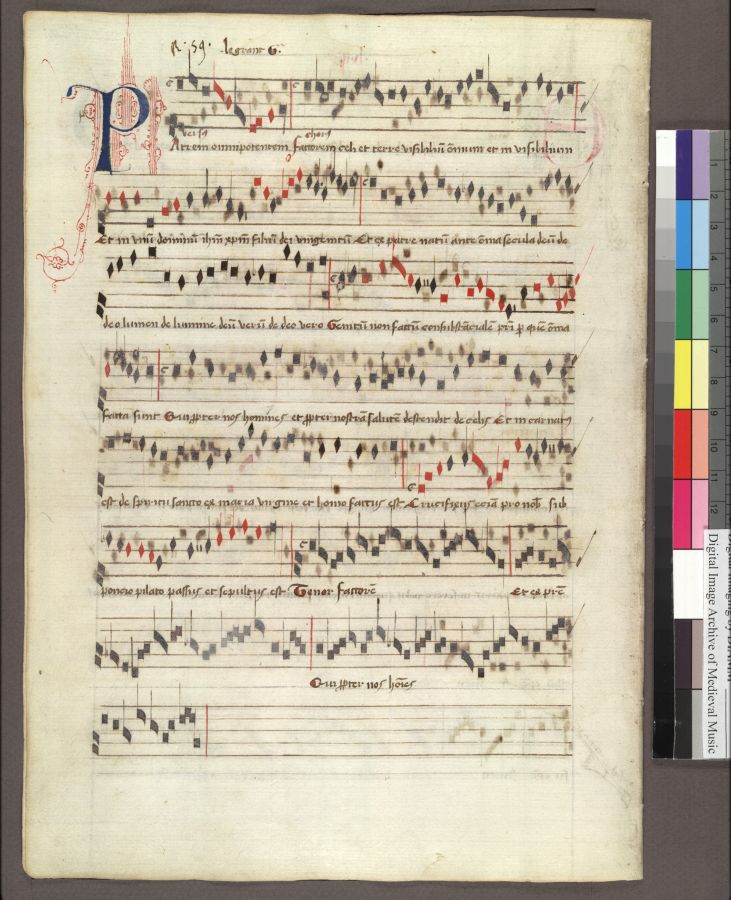 R · 59 · legrant G.
versus chorus
PAtrem omnipotentem factorem celi et terre visibiliũ õmium et in visibilium
Et in vnũ dominũ ihm̃ xp̃m filiũ dei vnigenitũ Et ex patre natũ ante õma secula deũ de
deo lumen de lumine deũ verũ de deo vero Genitũ non factũ consubstãciale pri p quẽ õma
facta sunt Qui ꝓpter nos homines et ꝓpter nostrã salutẽ descendit de celis Et in carnatꝰ
est de spiritu sancto ex maria virgine et homo factus est Crucifixus eciã pro nob̃ sub
poncio pilato passus et sepultus est Tenor factorẽ Et ex pr̃e
Qui ꝓpter nos hoĩes
1
2
3
4
5
6
7
8
9
10
11
12
Digital Image Archive of Medieval Music